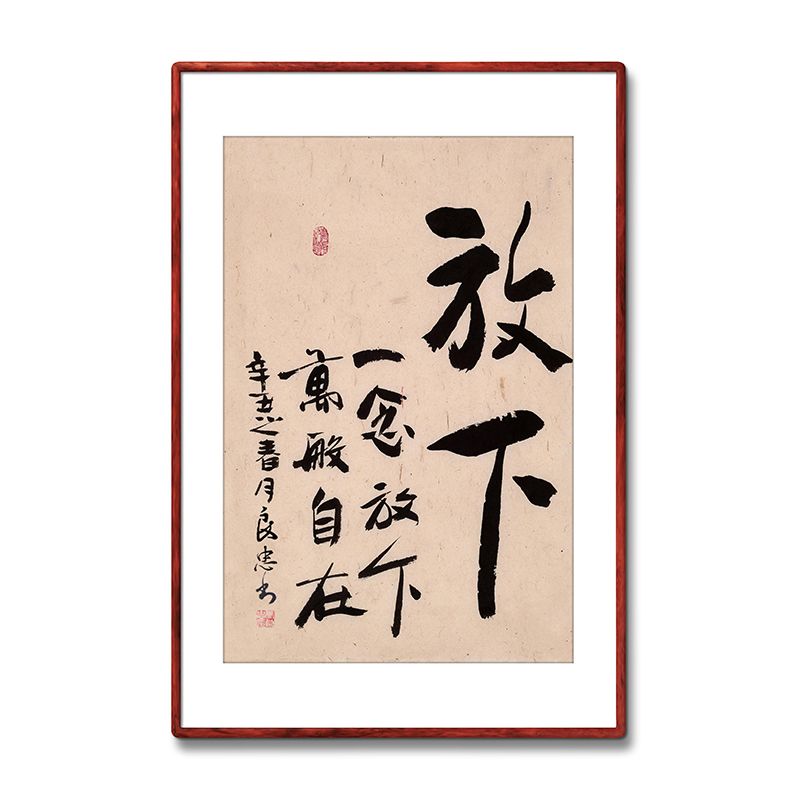 放下
一念放下
萬般自在
辛丑之春月良忠书